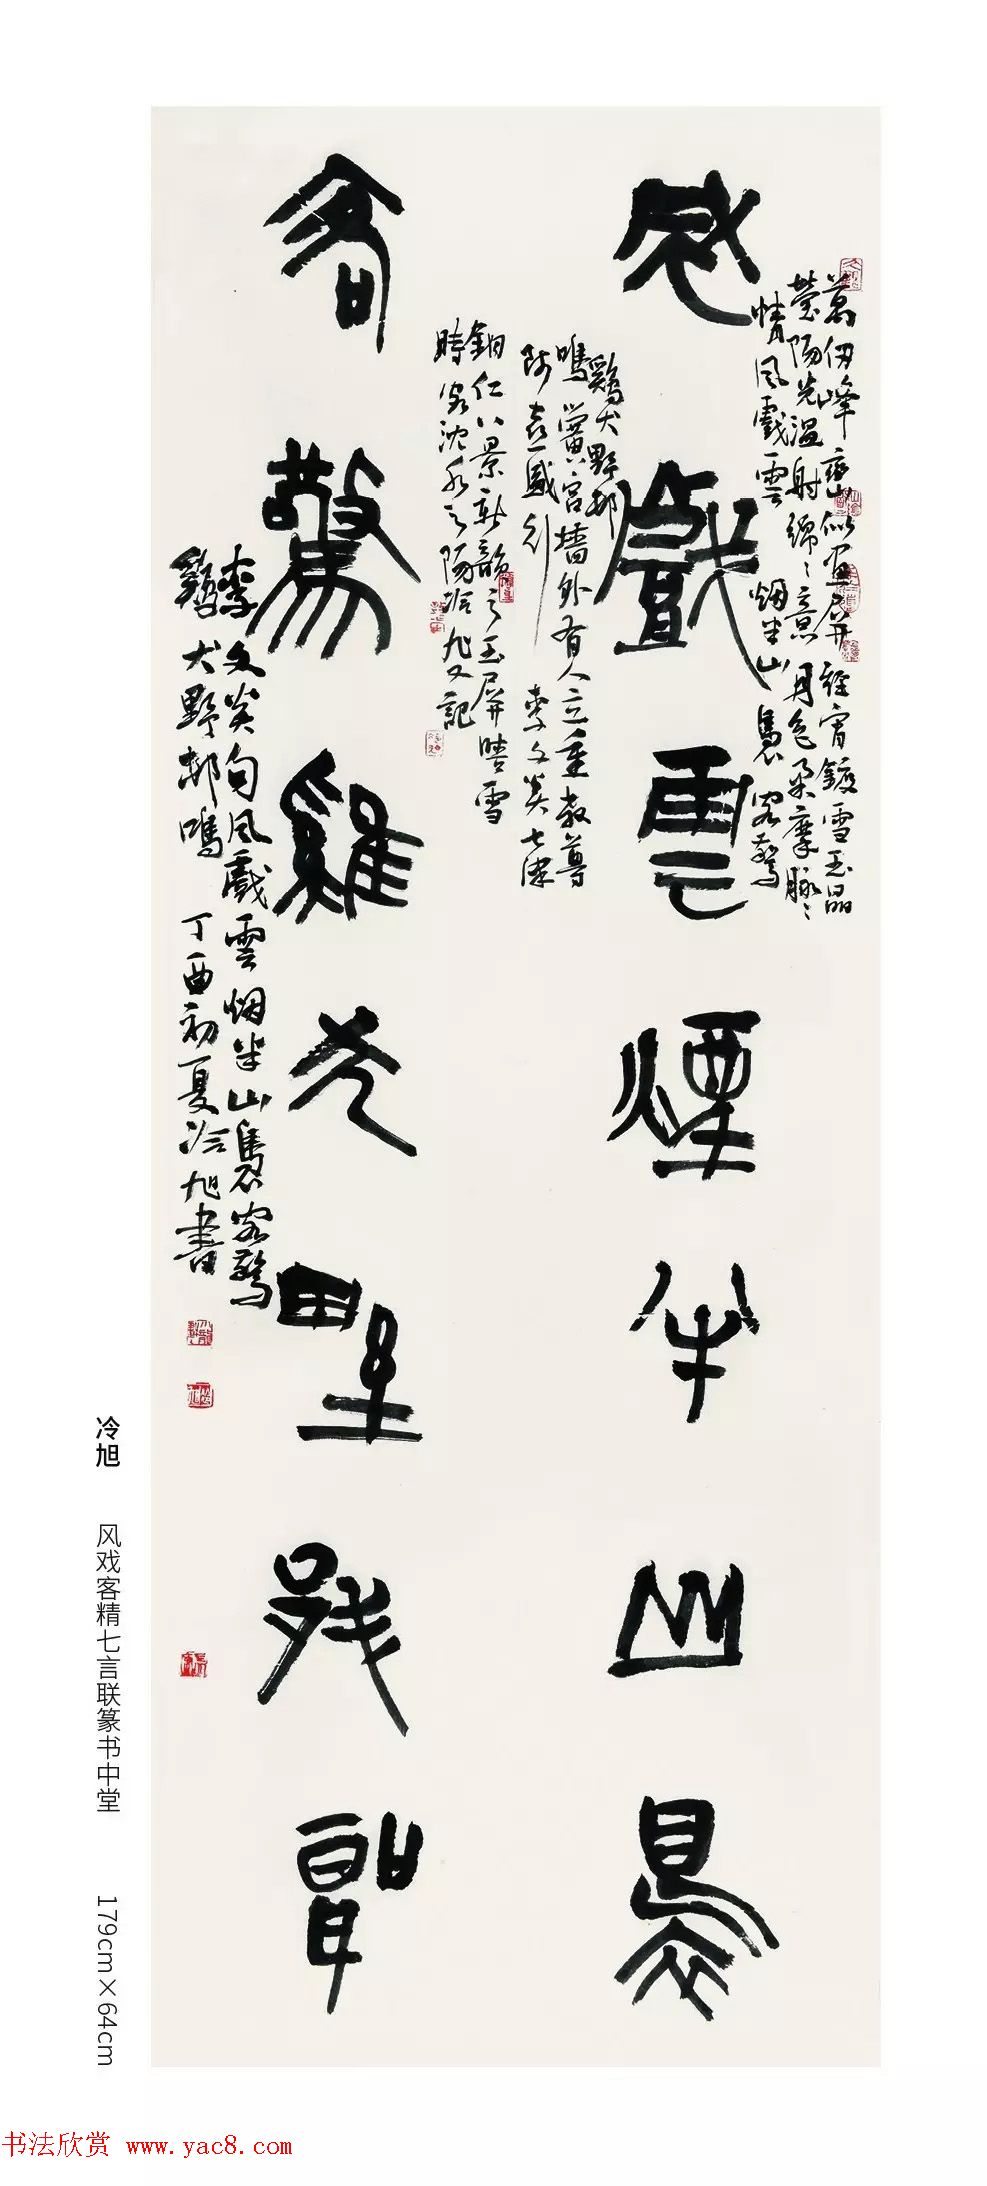 風戲雲煙半山裊
客驚雞犬野邨鳴
萬仞峰巒似畫屏 經宵鍍雪玉晶
瑩 陽光溫射綿〻意 月色柔摩脈〻
情 風戲雲烟半山裊 客驚
鷄犬野邨
鳴 黌宮墻外有人立 重教尊
師意感
李文炎七律
銅仁八景新韻之玉屏晴雪
時客沈水之陽冷旭又記
李文炎句風戲雲烟半山裊客驚
鷄犬野邨鳴 丁酉初夏冷旭書
冷旭 风戏客精七言联篆书中堂 179cm×64cm
书法欣赏 www.yac8.com